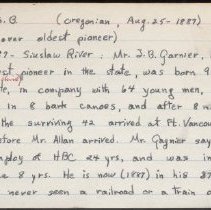 S. B (Oregonian, Aug. 25 - 1887)
over oldest pioneer)
Siuslaw River: Mr. J. B. Garnier,
est pioneer in the state, was born 9
de, in company with 64 young men,
in 8 bark canoes, and after 8 m
the surviving 42 arrived at Ft. Vancou
efore Mr. Allan arrived. Mr. Gagnier say
mploy of HBC 24 yrs, and was in
ce 8 yrs. He is now (1887) in his 87
never seen a railroad or a train o